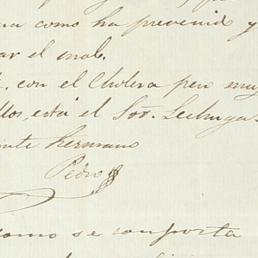 como ha prevenido y
ar el mal.
con el Cholera pero muy
está el Sor. Lechuga.
hermano
Pedro
como se comporta